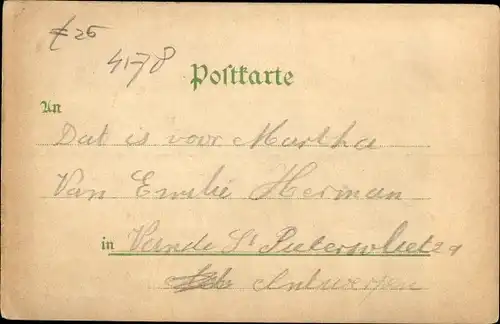 € 25
4178
Postkarte
An
Dat is voor Martha
Van Emilie Herman
in Vande St Pietersvliet 29
Antwerpen